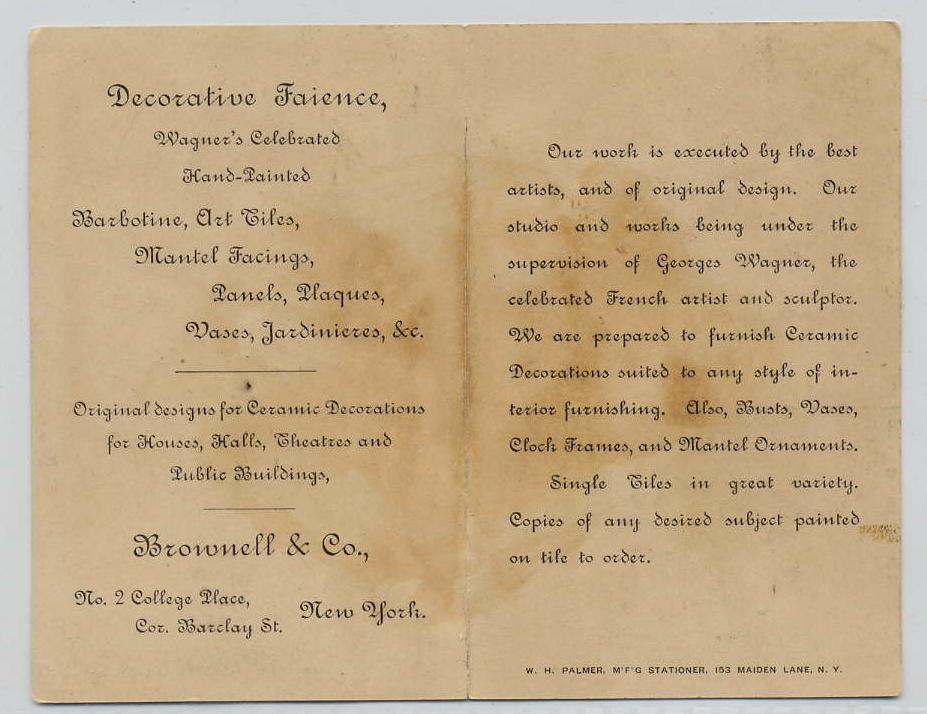 Decorative Faience,
Wagner's Celebrated
Hand-Painted
Barbotine, Art Tiles,
Mantel Facings,
Panels, Plaques,
Vases, Jardinieres, &c.
Original designs for Ceramic Decorations
for Houses, Halls, Theatres and
Public Buildings,
Brownell & Co.,
No. 2 College Place,
Cor. Barclay St.
New York.
Our work is executed by the best
artists, and of original design. Our
studio and works being under the
supervision of Georges Wagner, the
celebrated French artist and sculptor.
We are prepared to furnish Ceramic
Decorations suited to any style of in-
terior furnishing. Also, Busts, Vases,
Clock Frames, and Mantel Ornaments.
Single Tiles in great variety.
Copies of any desired subject painted
on tile to order.
W. H. PALMER, M'F'G STATIONER, 153 MAIDEN LANE, N. Y.